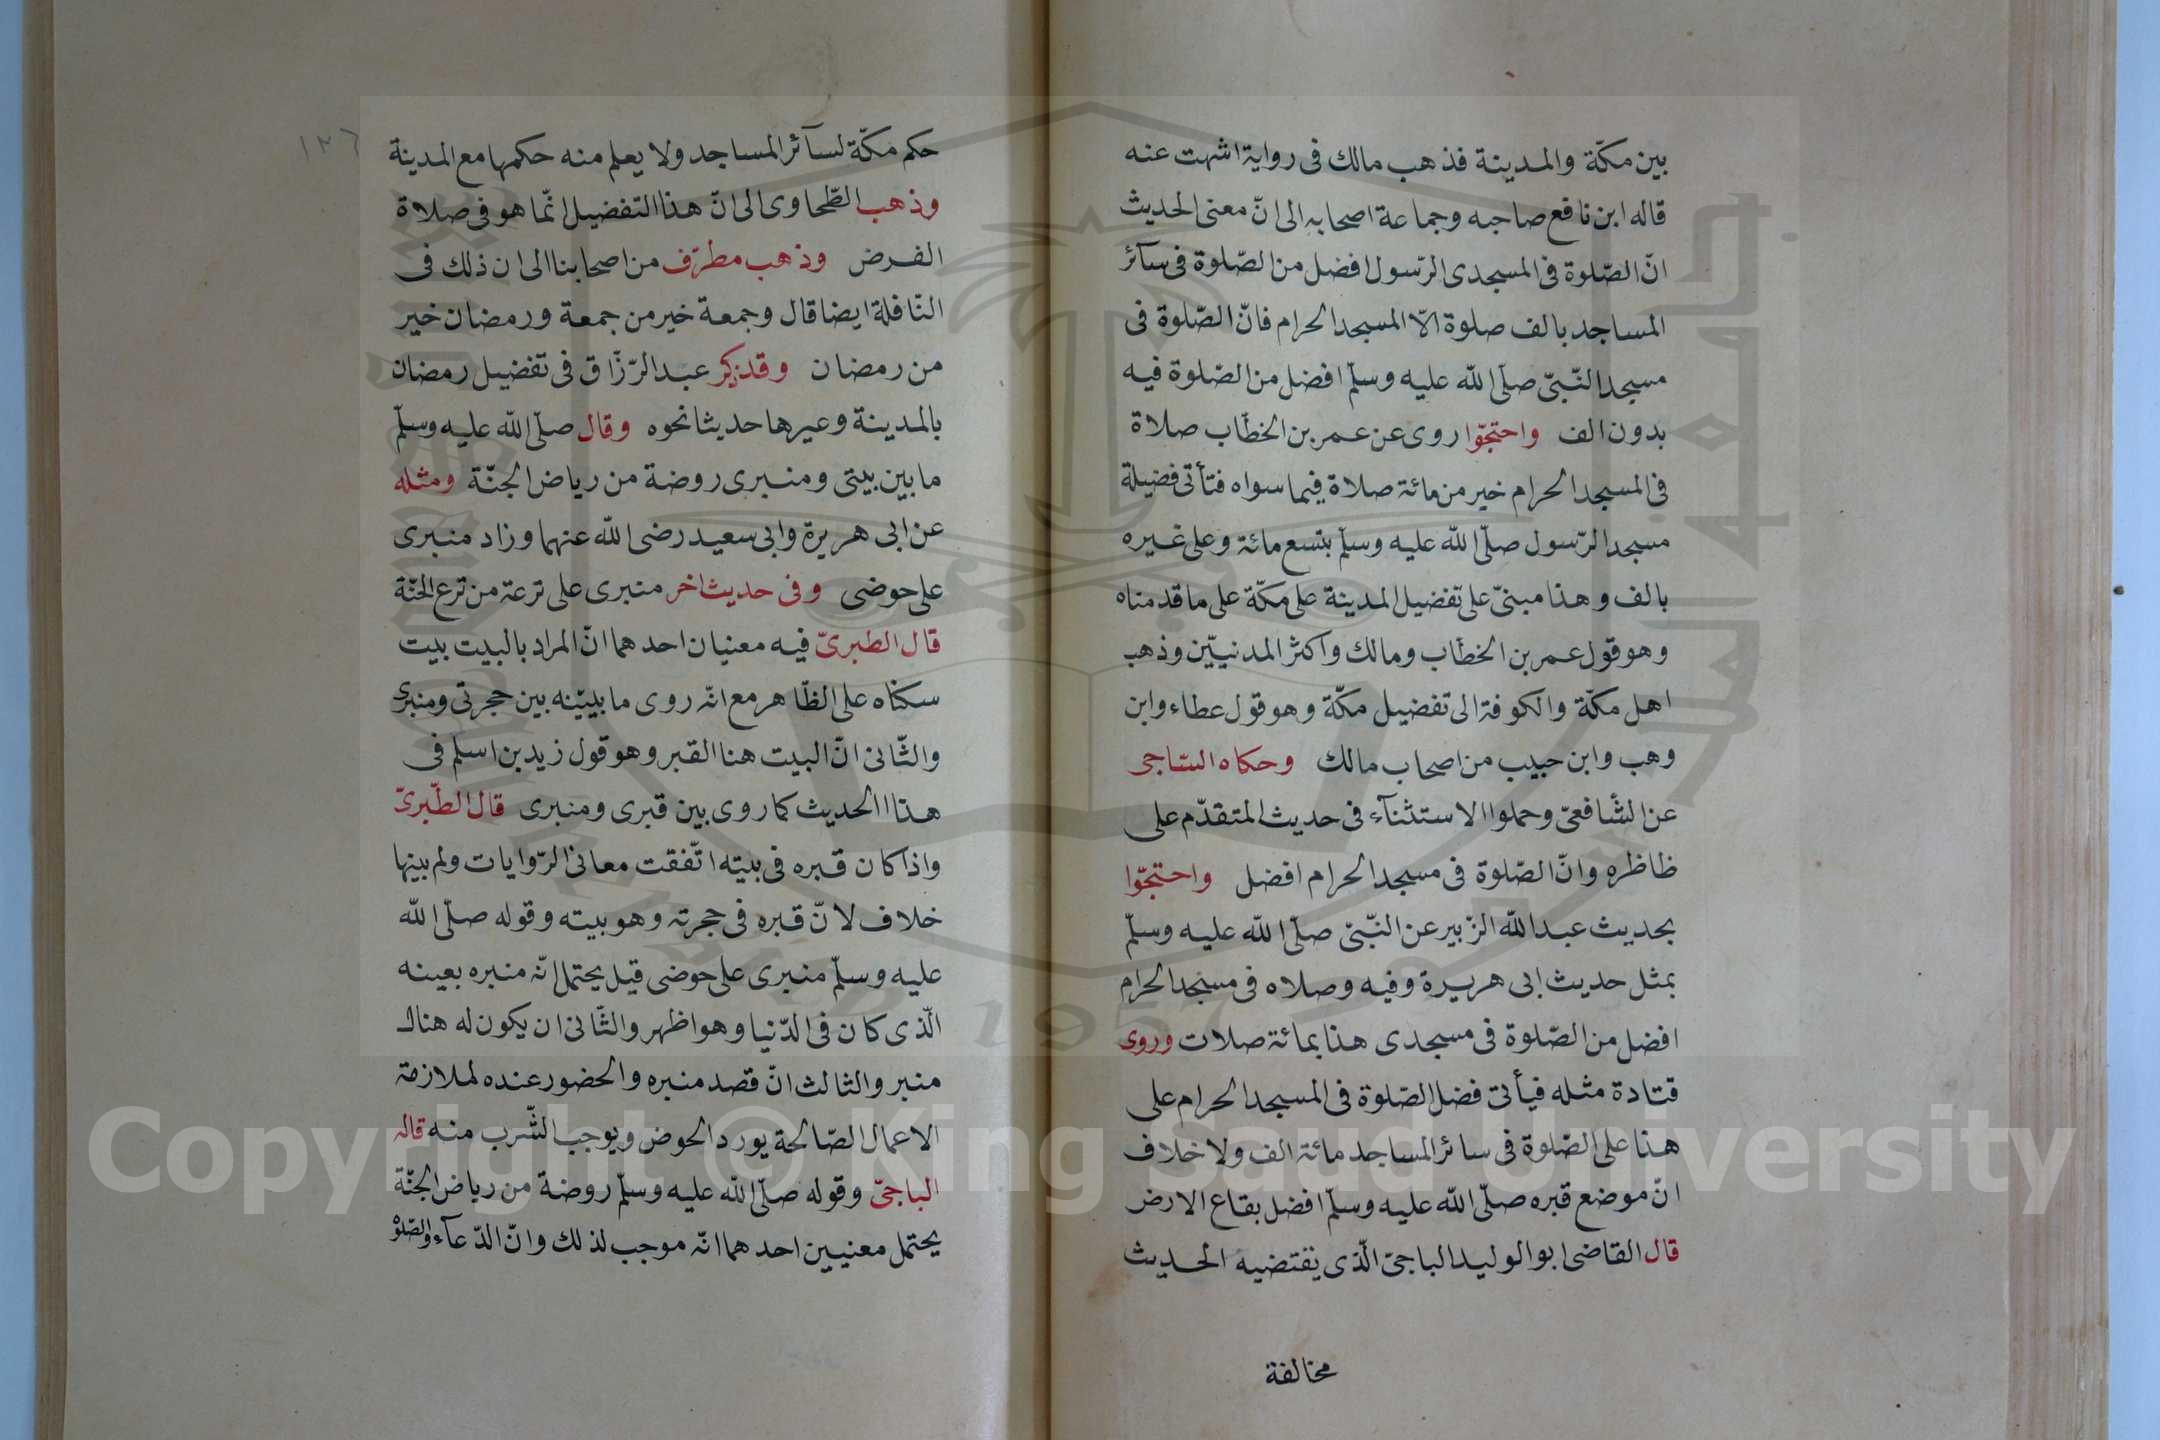 بين مكّة والمدينة فذهب مالك فى رواية اشهت عنه
قاله ابن نافع صاحبه وجماعة اصحابه الى انّ معنى الحديث
انّ الصّلوة فى المسجدى الرّسول افضل من الصّلوة فى سآئر
المساجد بالف صلوة الّا المسجد الحرام فانّ الصّلوة فى
مسجد النّبىّ صلّى اللّه عليه وسلّم افضل من الصّلوة فيه
بدون الف واحتجّوا روى عن عمر بن الخطّاب صلاة
فى المسجد الحرام خير من مائة صلاة فيما سواه فتأتى فضيلة
مسجد الرّسول صلّى اللّه عليه وسلّم بتسع مائة وعلى غيره
بالف وهذا مبنىّ على تفضيل المدينة على مكّة على ما قدمناه
وهو قول عمر بن الخطّاب ومالك واكثر المدنيّين وذهب
اهل مكّة والكوفة الى تفضيل مكّة وهو قول عطاء وابن
وهب وابن حبيب من اصحاب مالك وحكاه السّاجى
عن الشّافعىّ وحملوا الاستثنآء فى حديث المتقدّم على
ظاظره وانّ الصّلوة فى مسجد الحرام افضل واحتجّوا
بحديث عبد اللّه الزّبير عن النّبىّ صلّى اللّه عليه وسلّم
بمثل حديث ابى هريرة وفيه وصلاه فى مسجد الحرام
افضل من الصّلوة فى مسجدى هذا بمائة صلات وروى
قتادة مثله فيأتى فضل الصّلوة فى المسجد الحرام على
هذا على الصّلوة فى سائر المساجد مائة الف ولا خلاف
انّ موضع قبره صلّى اللّه عليه وسلّم افضل بقاع الارض
قال القاضى ابو الوليد الباجىّ الّذى يقتضيه الحديث
مخالفة
١٢٦
حكم مكّة لسآئر المساجد ولا يعلم منه حكمها مع المدينة
وذهب الطّحاوى الى انّ هذا التفضيل انّما هو فى صلاة
الفرض وذهب مطرّف من اصحابنا الى ان ذلك فى
النّافلة ايضا قال وجمعة خير من جمعة ورمضان خير
من رمضان وقد ذكر عبد الرّزّاق فى تفضيل رمضان
بالمدينة وعيرها حديثا نحوه وقال صلّى اللّه عليه وسلّم
ما بين بيتى ومنبرى روضة من رياض الجنّة ومثله
عن ابى هريرة وابى سعيد رضى اللّه عنهما وزاد منبرى
على حوضى وفى حديث اخر منبرى على ترعة من ترع الجنّة
قال الطبرىّ فيه معنيان احدهما انّ المراد بالبيت بيت
سكناه على الظّاهر مع انّه روى ما بيّنه بين حجرتى ومنبرى
والثّانى انّ البيت هنا القبر وهو قول زيد بن اسلم فى
هذا الحديث كما روى بين قبرى ومنبرى قال الطّبرىّ
واذا كان قبره فى بيته اتّفقت معانى الرّوايات ولم بينها
خلاف لانّ قبره فى حجرته وهو بيته وقوله صلّى اللّه
عليه وسلّم منبرى على حوضى قيل يحتمل انّه منبره بعينه
الّذى كان فى الدّنيا وهو اظهر والثّانى ان يكون له هناك
منبر والثالث انّ قصد منبره والحضور عنده لملازمة
الاعمال الصّالحة يورد الحوض ويوجب الشّرب منه قاله
الباجىّ وقوله صلّى اللّه عليه وسلّم روضة من رياض الجنّة
يحتمل معنيين احدهما انّه موجب لذلك وانّ الدّعآء والصّلوة
Copyright © King Saud University
1957